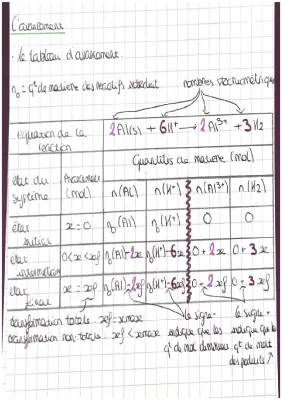 L'avancement
• le tableau d'avancement
n₀ = qté de matière des réactifs
nombres stœchiométriques
équation de la réaction
2Al(s) + 6H⁺ → 2Al³⁺ + 3H₂
Quantités de matière (mol)
état du système
Avancement (mol)
n(Al) n(H⁺) n(Al³⁺) n(H₂)
état initial x = 0 n₀(Al) n₀(H⁺) 0 0
état 0 < x < xf n₀(Al) - 2x n₀(H⁺) - 6x 0 + 2x 0 + 3x
état final x = xf n₀(Al) - 2xf n₀(H⁺) - 6xf 0 + 2xf 0 + 3xf
transformation totale: xf = xmax
transformation non-totale: xf < xmax
le signe - indique que les qté de mat diminuent
le signe + indique que la qté de mat des produits ↗